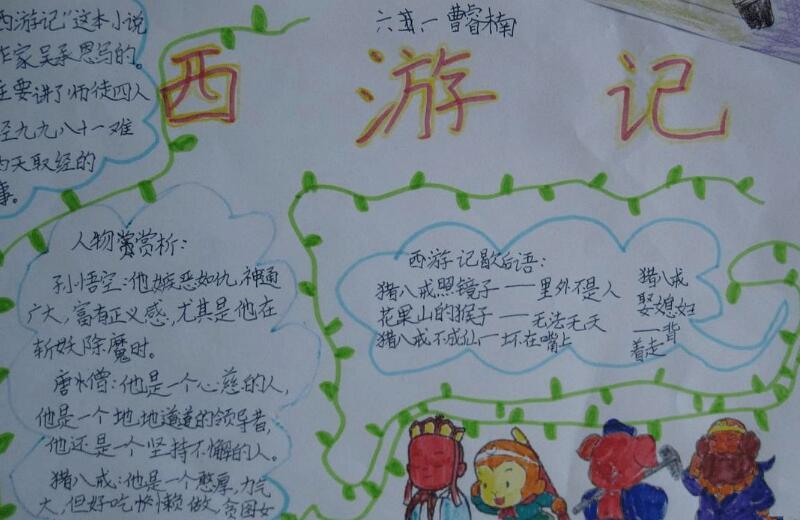 六 一 曹睿楠
西游记
西游记"这本小说
作家吴承恩写的。
主要讲了师徒四人
经九九八十一难
西天取经的
事。
人物赏析：
孙悟空：他嫉恶如仇，神通
广大，富有正义感，尤其是他在
斩妖除魔时。
唐僧：他是一个心慈的人，
他是一个地地道道的领导者，
他还是一个坚持不懈的人。
猪八戒：他是一个憨厚，力气
大，但好吃懒做，贪图女
西游记歇后语：
猪八戒照镜子——里外不是人
花果山的猴子——无法无天
猪八戒不成仙—坏在嘴上
猪八戒
娶媳妇
—背
着走